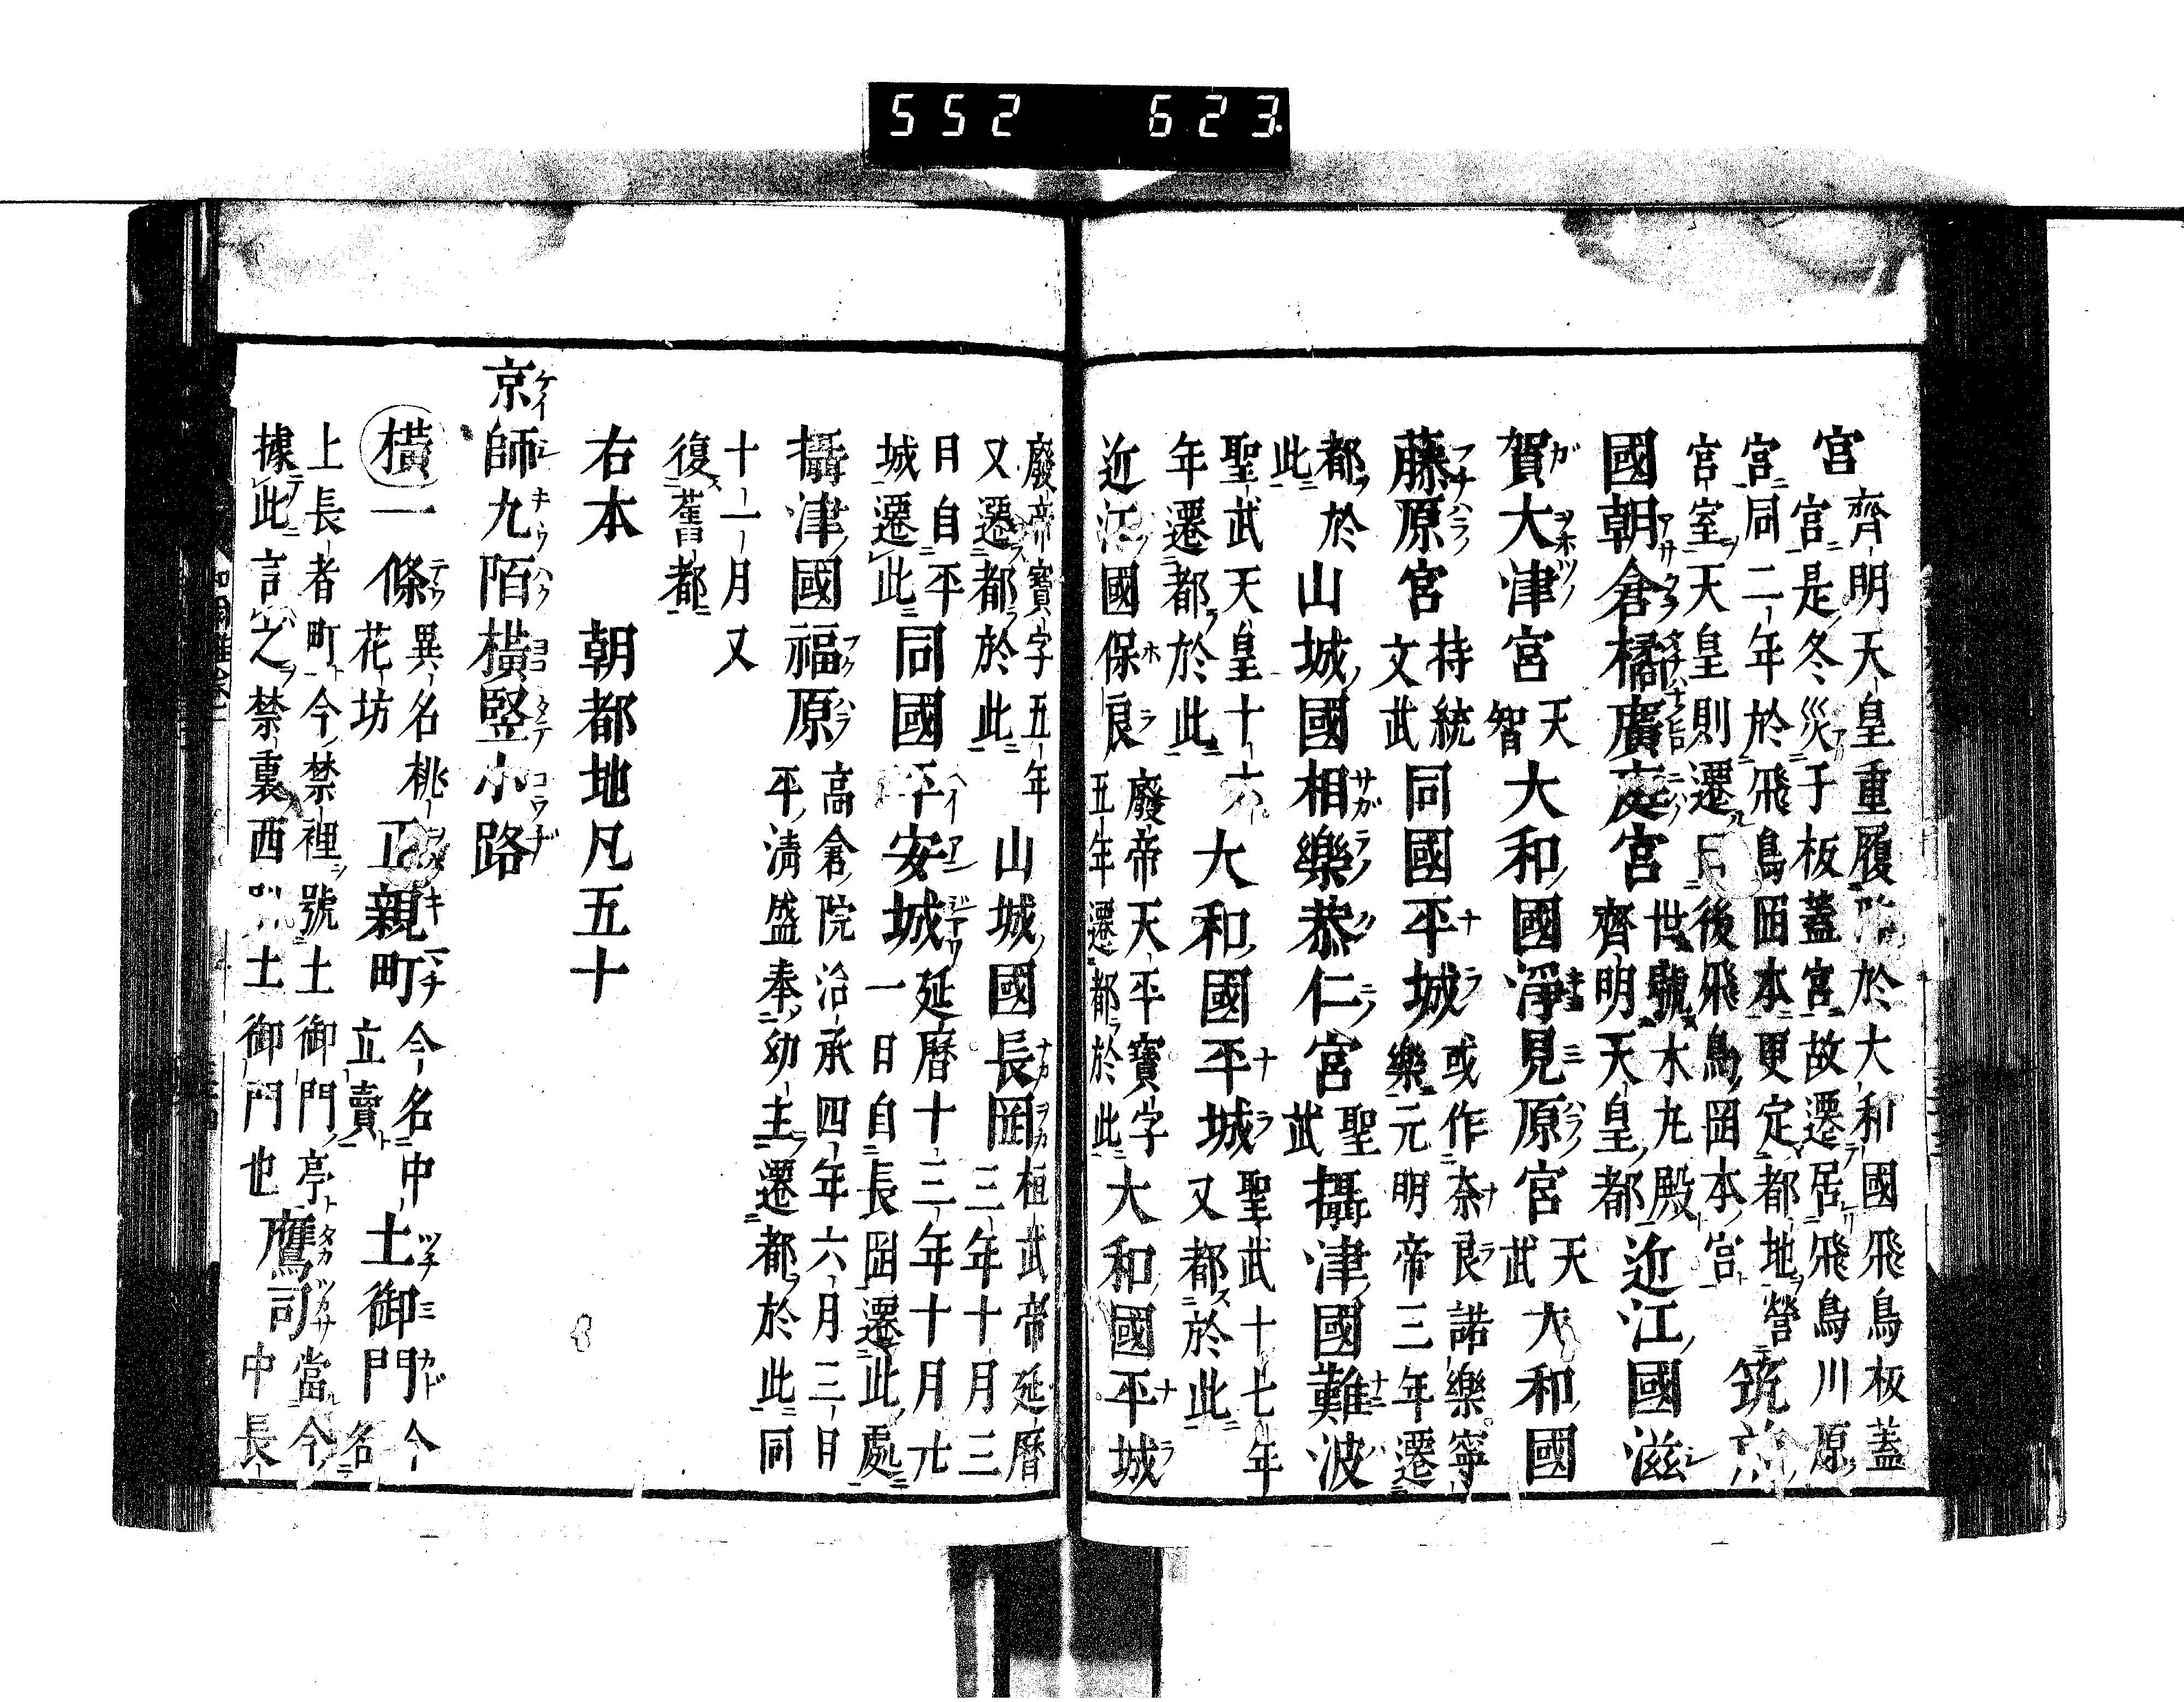 552 623
宮 齊明天皇重履 於大和國飛鳥板蓋
宮是冬災于板蓋宮故遷居飛鳥川原
宮同二年於飛鳥岡本更定都地營
宮室天皇則遷 後飛鳥岡本宮 筑
國朝倉橘廣庭宮 世號木丸殿 齊明天皇都 近江國滋
賀大津宮 天智 大和國淨見原宮 天武 大和國
藤原宮 持統文武 同國平城 或作奈良諾樂寧樂元明帝三年遷
都於此 山城國相樂恭仁宮 聖武 攝津國難波
聖武天皇十六年遷都於此 大和國平城 聖武十七年又都於此
近江國保良 廢帝天平寶字五年遷都於此 大和國平城
廢帝寶字五年又遷都於此 山城國長岡 桓武帝延曆三年十月三
日自平城遷此 同國平安城 延曆十三年十月廿一日自長岡遷此處
攝津國福原 高倉院治承四年六月三日平清盛奉幼主遷都於此同
十一月又復舊都
右本朝都地凡五十
京師九陌橫竪小路
橫一條 異名桃花坊 正親町 今名中立賣 土御門 今名
上長者町今禁裡號土御門亭當今
據此言之禁裏西 土御門也 鷹司 中長